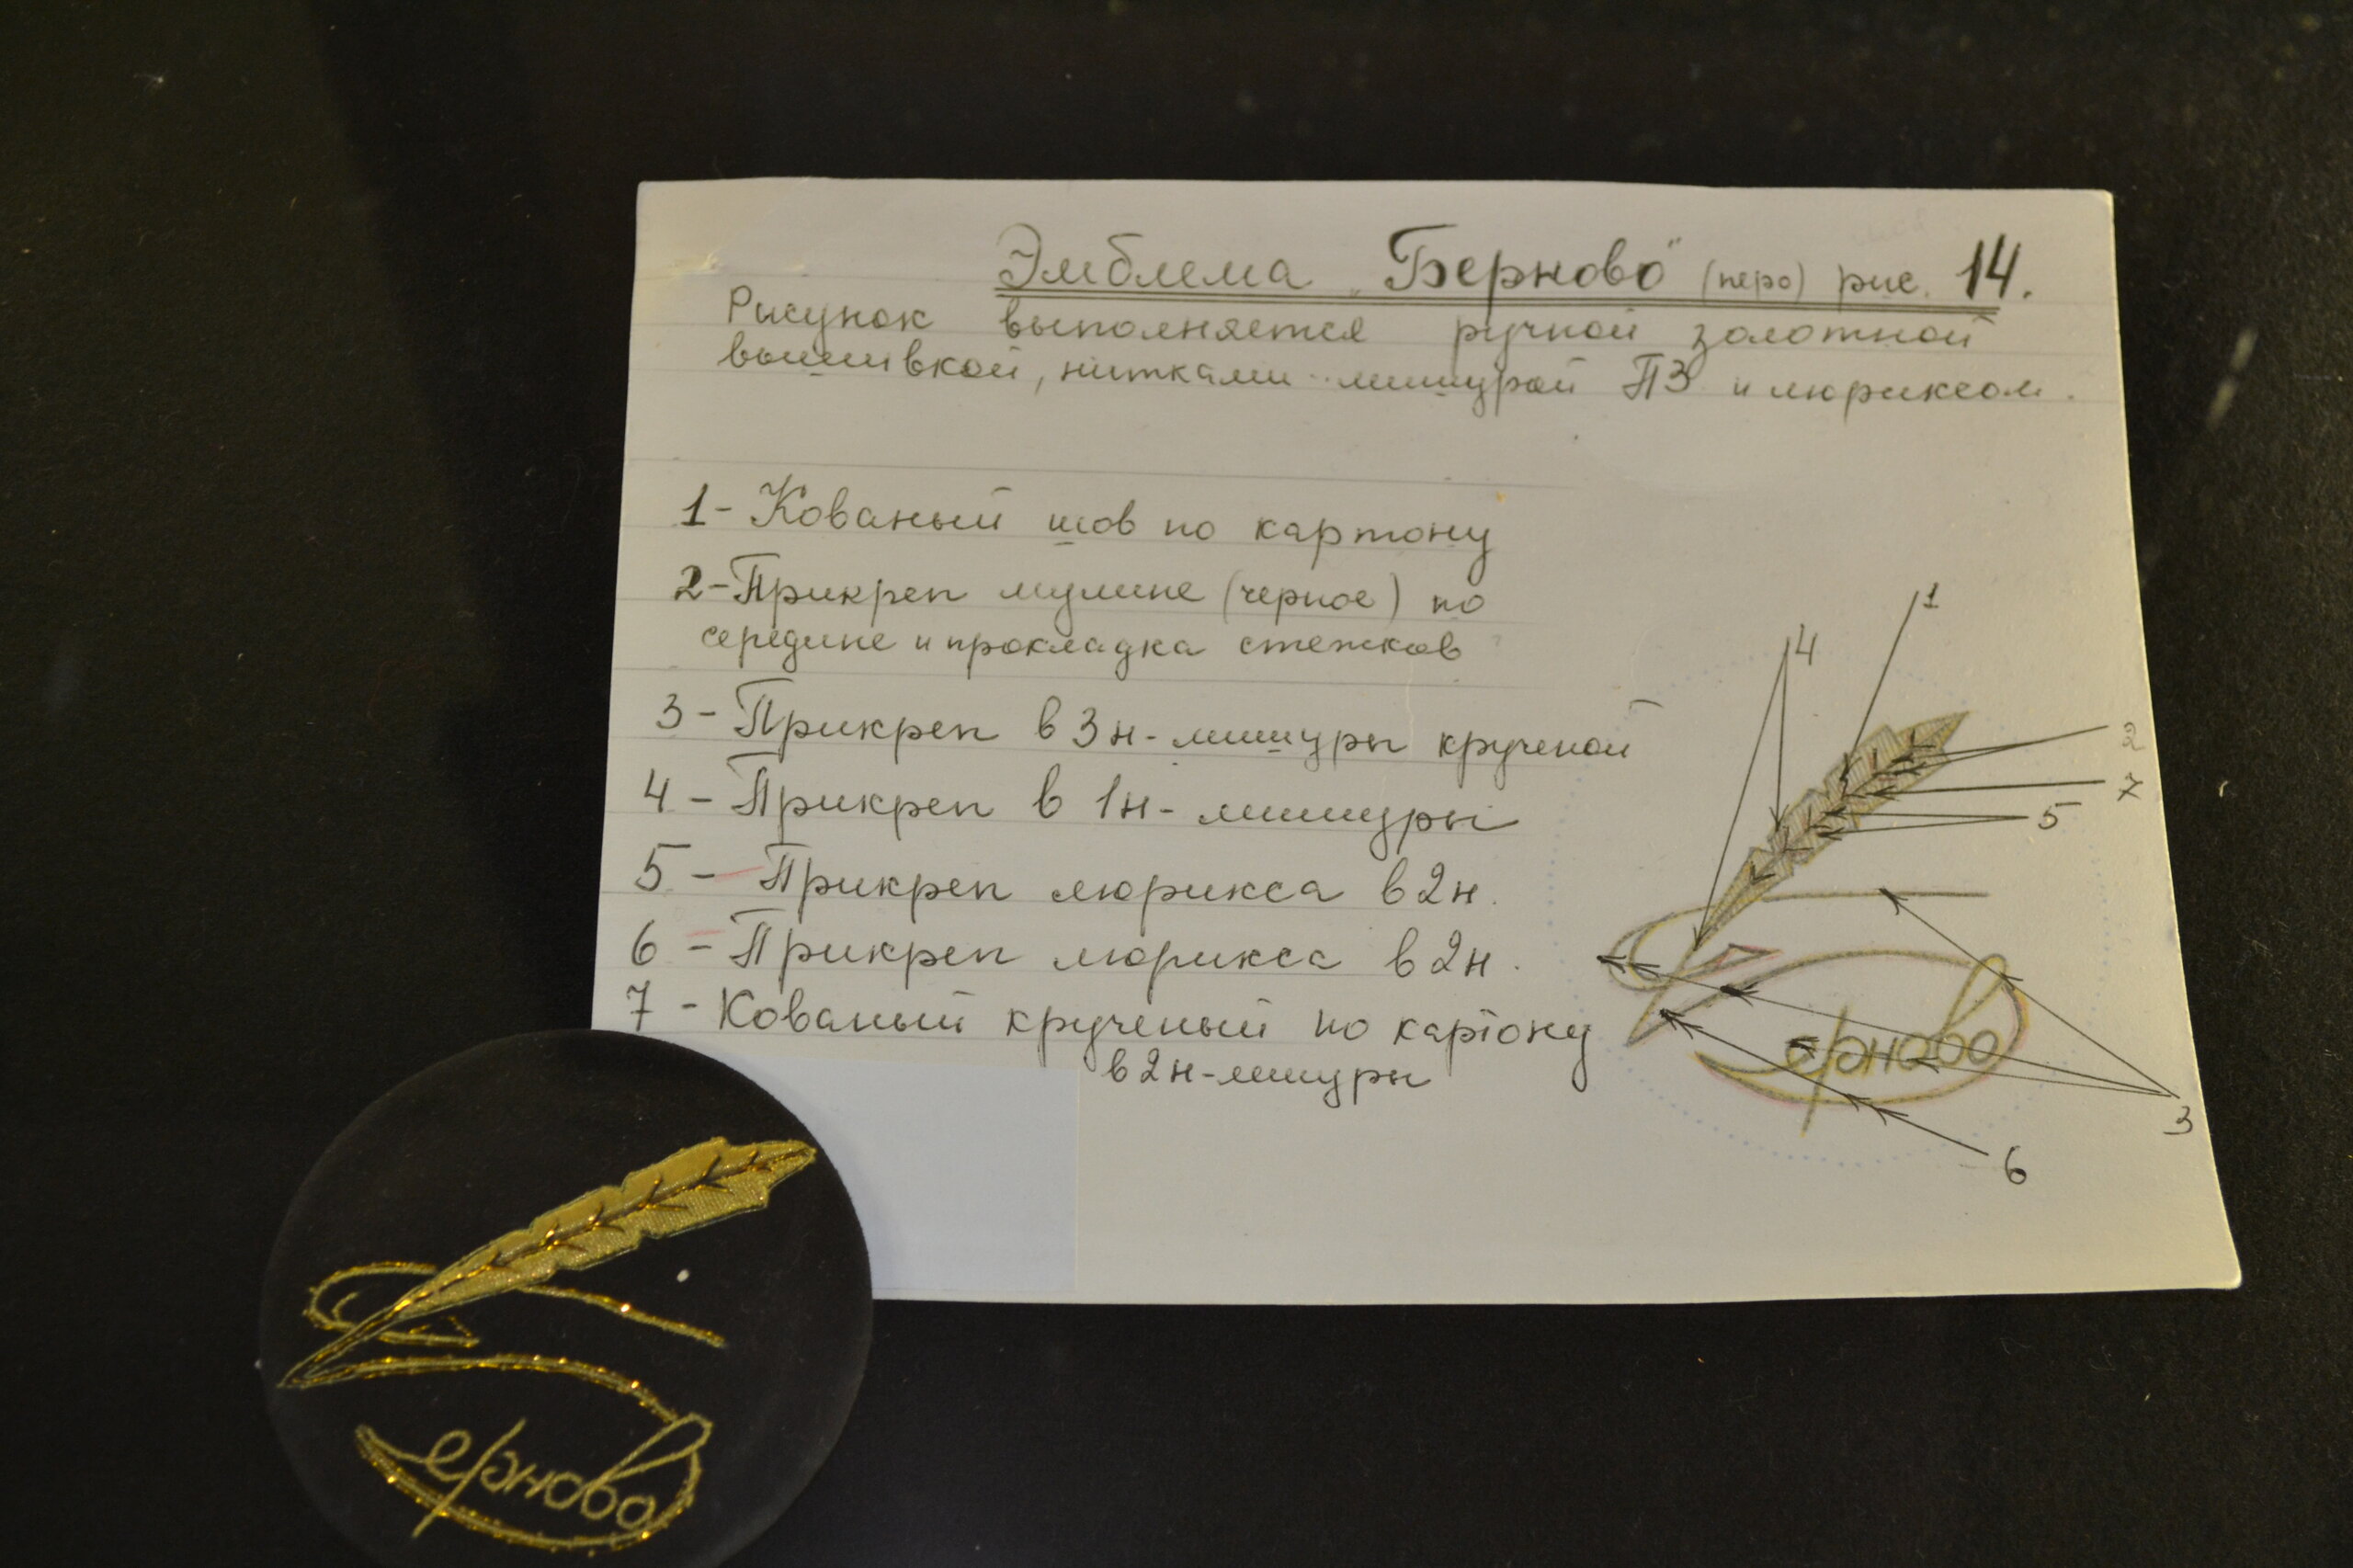 Эмблема „Берново" (перо) рис. 14.
Рисунок выполняется ручной золотной
вышивкой, нитками-мишурой ПЗ и люриксом.
1- Кованый шов по картону
2-Прикреп мулине (черное) по
середине и прокладка стежков
3- Прикреп в 3н-мишуры крученой
4 - Прикреп в 1н-мишуры
5 - Прикреп люрикса в 2н.
6 - Прикреп люрикса в 2н.
7 - Кованый крученый по картону
в 2н-мишуры
1
4
2
7
5
ерново
3
6
ерново